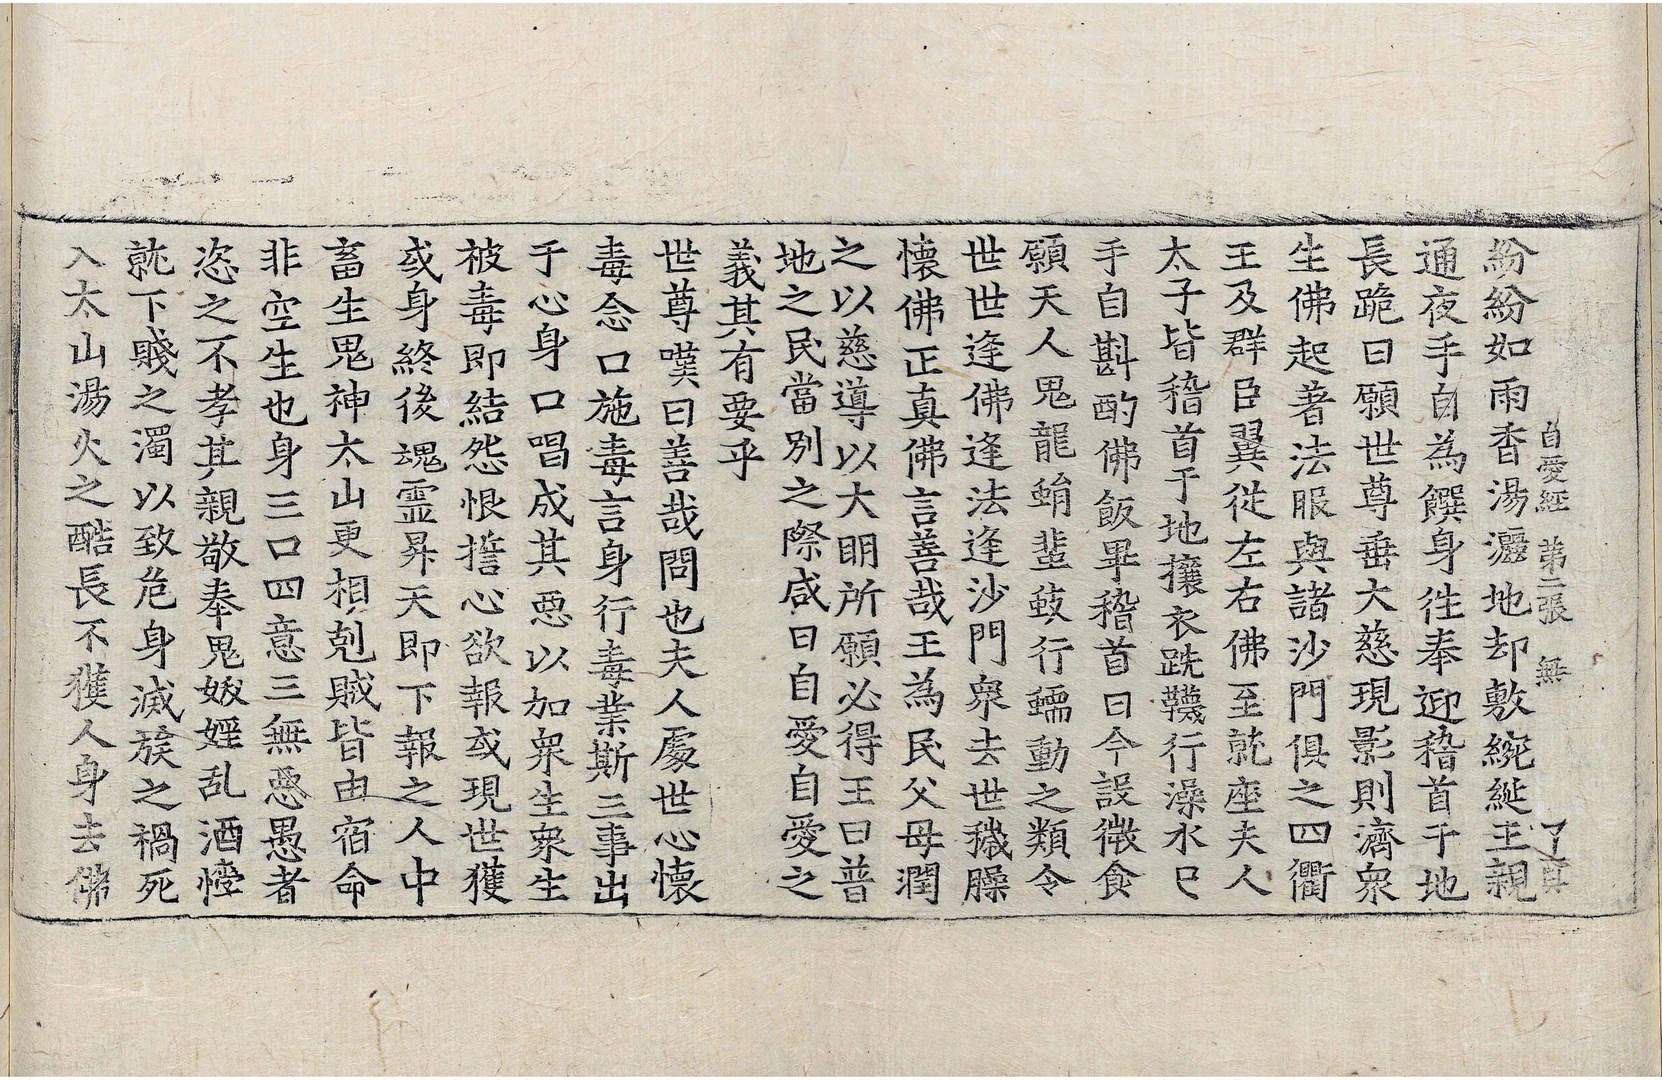 自愛經 第二張 無 了真
紛紛如雨香湯灑地却敷綩綖王親
通夜手自為饌身往奉迎稽首于地
長跪曰願世尊垂大慈現影則濟衆
生佛起著法服與諸沙門俱之四衢
王及群臣翼從左右佛至就座夫人
太子皆稽首于地攘衣跣韈行澡水已
手自斟酌佛飯畢稽首曰今設微食
願天人鬼龍蜎蜚蚑行蠕動之類令
世世逢佛逢法逢沙門衆去世穢臊
懷佛正真佛言善哉王為民父母潤
之以慈導以大明所願必得王曰普
地之民當別之際咸曰自愛自愛之
義其有要乎
世尊嘆曰善哉問也夫人處世心懷
毒念口施毒言身行毒業斯三事出
于心身口唱成其惡以加衆生衆生
被毒即結怨恨誓心欲報或現世獲
或身終後魂霊昇天即下報之人中
畜生鬼神太山更相剋賊皆由宿命
非空生也身三口四意三無惡愚者
恣之不孝其親敬奉鬼妭婬乱酒悖
就下賤之濁以致危身滅族之禍死
入太山湯火之酷長不獲人身去佛